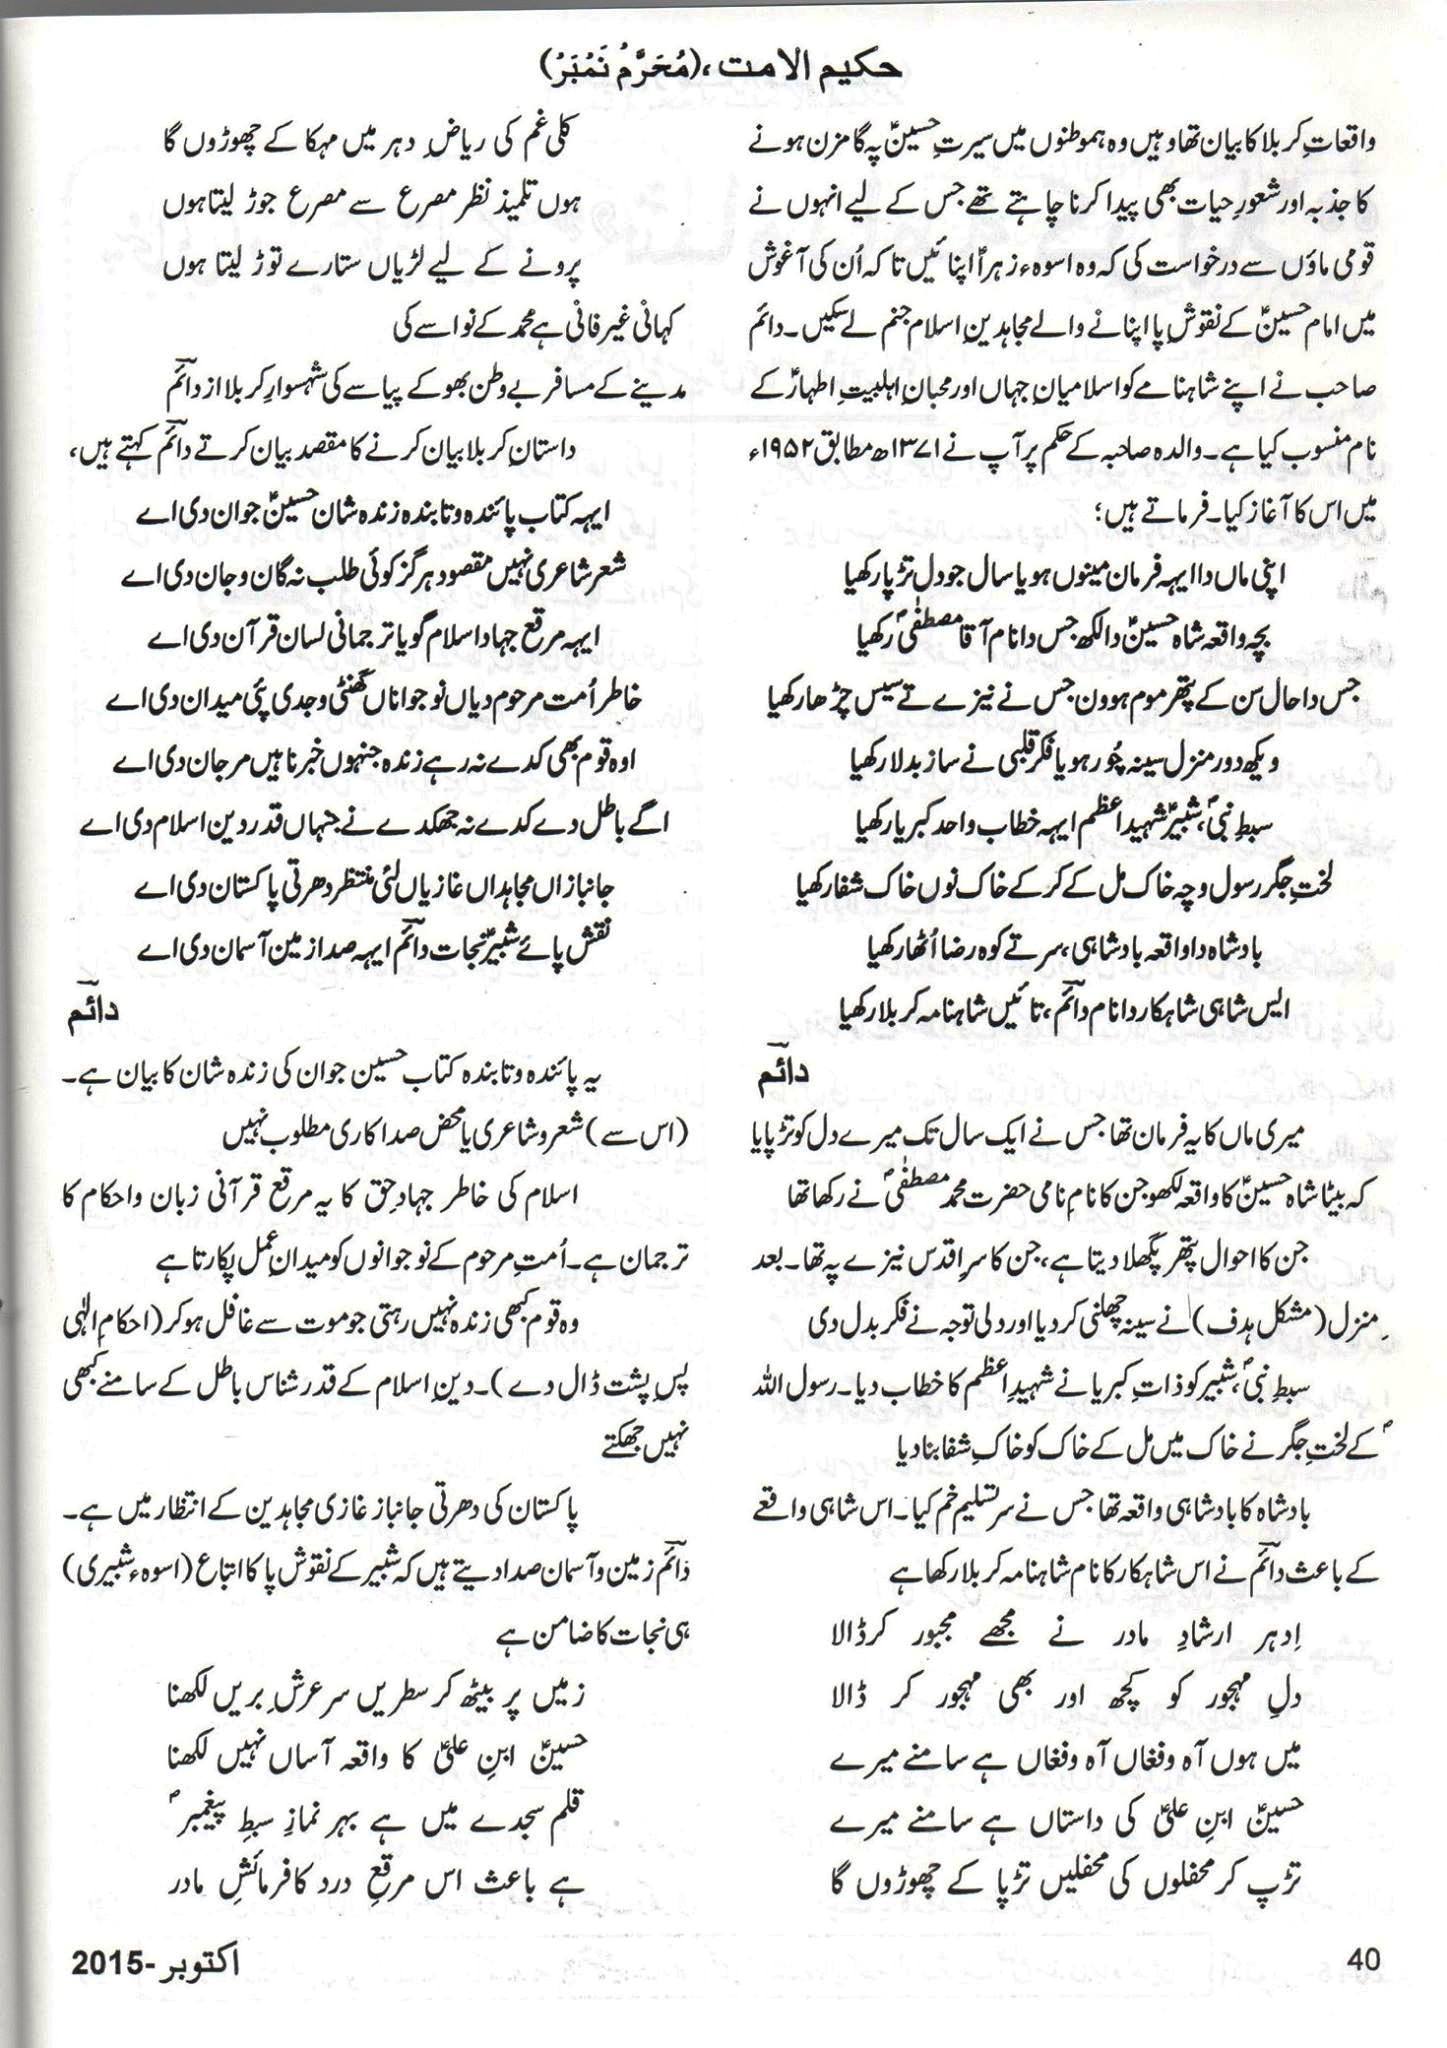 حکیم الامت، (مُحَرَّمْ نَمْبَرْ)
واقعاتِ کربلا کا بیان تھا وہیں وہ ہموطنوں میں سیرتِ حسینؑ پہ گامزن ہونے
کا جذبہ اور شعورِ حیات بھی پیدا کرنا چاہتے تھے جس کے لیے انہوں نے
قومی ماؤں سے درخواست کی کہ وہ اسوہء زہراؑ اپنائیں تاکہ اُن کی آغوش
میں امام حسینؑ کے نقوشِ پا اپنانے والے مجاہدینِ اسلام جنم لے سکیں۔ دائم
صاحب نے اپنے شاہنامے کو اسلامیانِ جہاں اور محبانِ اہلبیتِ اطہارؑ کے
نام منسوب کیا ہے۔ والدہ صاحبہ کے حکم پر آپ نے ۱۳۷۱ھ مطابق ۱۹۵۲ء
میں اس کا آغاز کیا۔ فرماتے ہیں؛
اپنی ماں دا ایہہ فرمان مینوں ہویا سال جو دل تڑپا رکھیا
بچہ واقعہ شاہ حسینؑ دا لکھ جس دا نام آقا مصطفٰیؐ رکھیا
جس دا حال سن کے پتھر موم ہوون جس نے نیزے تے سیس چڑھا رکھیا
ویکھ دور منزل سینہ چُور ہویا فکر قلبی نے ساز بدلا رکھیا
سبطِ نبیؐ، شبیرؑ شہید اعظم ایہہ خطاب واحد کبریا رکھیا
لختِ جگر رسول وچہ خاک مل کے کر کے خاک نوں خاک شفا رکھیا
بادشاہ دا واقعہ بادشاہی، سر تے کوہ رضا اُٹھا رکھیا
ایس شاہی شاہکار دا نام دائمؔ، تائیں شاہنامہ کربلا رکھیا
دائمؔ
میری ماں کا یہ فرمان تھا جس نے ایک سال تک میرے دل کو تڑپایا
کہ بیٹا شاہ حسینؑ کا واقعہ لکھو جن کا نامِ نامی حضرت محمد مصطفٰیؐ نے رکھا تھا
جن کا احوال پتھر پگھلا دیتا ہے، جن کا سرِ اقدس نیزے پہ تھا۔ بعد
ِ منزل (مشکل ہدف) نے سینہ چھلنی کر دیا اور دلی توجہ نے فکر بدل دی
سبطِ نبیؐ، شبیر کو ذاتِ کبریا نے شہیدِ اعظم کا خطاب دیا۔ رسول اللہ
ؐ کے لختِ جگر نے خاک میں مل کے خاک کو خاکِ شفا بنا دیا
بادشاہ کا بادشاہی واقعہ تھا جس نے سر تسلیم خم کیا۔ اس شاہی واقعے
کے باعث دائمؔ نے اس شاہکار کا نام شاہنامہ کربلا رکھا ہے
اِدہر ارشادِ مادر نے مجھے مجبور کر ڈالا
دلِ مہجور کو کچھ اور بھی مہجور کر ڈالا
میں ہوں آہ وفغاں آہ وفغاں ہے سامنے میرے
حسینؑ ابنِ علیؑ کی داستاں ہے سامنے میرے
تڑپ کر محفلوں کی محفلیں تڑپا کے چھوڑوں گا
کلی غم کی ریاضِ دہر میں مہکا کے چھوڑوں گا
ہوں تلمیذ نظر مصرع سے مصرع جوڑ لیتا ہوں
پرونے کے لیے لڑیاں ستارے توڑ لیتا ہوں
کہانی غیر فانی ہے محمد کے نواسے کی
مدینے کے مسافر بے وطن بھوکے پیاسے کی شہسوارِ کربلا از دائمؔ
داستانِ کربلا بیان کرنے کا مقصد بیان کرتے دائمؔ کہتے ہیں،
ایہہ کتاب پائندہ و تابندہ زندہ شان حسینؑ جوان دی اے
شعر شاعری نہیں مقصود ہرگز کوئی طلب نہ گان وجان دی اے
ایہہ مرقع جہاد اسلام گویا ترجمانی لسان قرآن دی اے
خاطر اُمت مرحوم دیاں نوجواناں گھنٹی وجدی پئی میدان دی اے
اوہ قوم بھی کدے نہ رہے زندہ جنہوں خبر ناہیں مر جان دی اے
اگے باطل دے کدے نہ جھکدے نے جنہاں قدر دین اسلام دی اے
جانبازاں مجاہداں غازیاں لئی منتظر دھرتی پاکستان دی اے
نقش پائے شبیرؑ نجات دائمؔ ایہہ صدا زمین آسمان دی اے
دائمؔ
یہ پائندہ و تابندہ کتاب حسین جوان کی زندہ شان کا بیان ہے۔
(اس سے) شعر و شاعری یا محض صداکاری مطلوب نہیں
اسلام کی خاطر جہادِ حق کا یہ مرقع قرآنی زبان واحکام کا
ترجمان ہے۔ اُمتِ مرحوم کے نوجوانوں کو میدانِ عمل پکارتا ہے
وہ قوم کبھی زندہ نہیں رہتی جو موت سے غافل ہو کر (احکامِ الٰہی
پسِ پشت ڈال دے)۔ دینِ اسلام کے قدر شناس باطل کے سامنے کبھی
نہیں جھکتے
پاکستان کی دھرتی جانباز غازی مجاہدین کے انتظار میں ہے۔
دائمؔ زمین و آسمان صدا دیتے ہیں کہ شبیر کے نقوش پا کا اتباع (اسوہء شبیری)
ہی نجات کا ضامن ہے
زمیں پر بیٹھ کر سطریں سر عرشِ بریں لکھنا
حسینؑ ابنِ علیؑ کا واقعہ آساں نہیں لکھنا
قلم سجدے میں ہے بہر نمازِ سبطِ پیغمبرؐ
ہے باعث اس مرقعِ درد کا فرمائشِ مادر
40
اکتوبر-2015